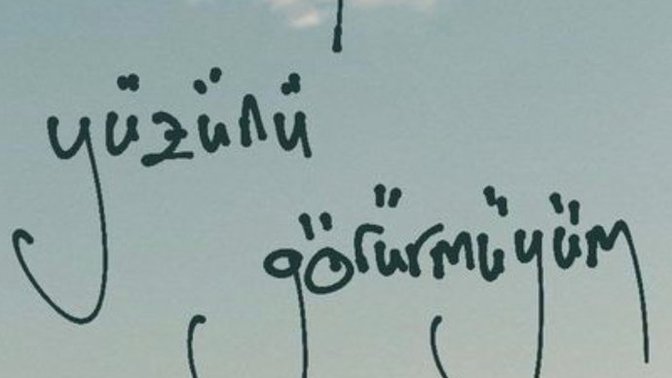 yüzünü
görürmüyüm